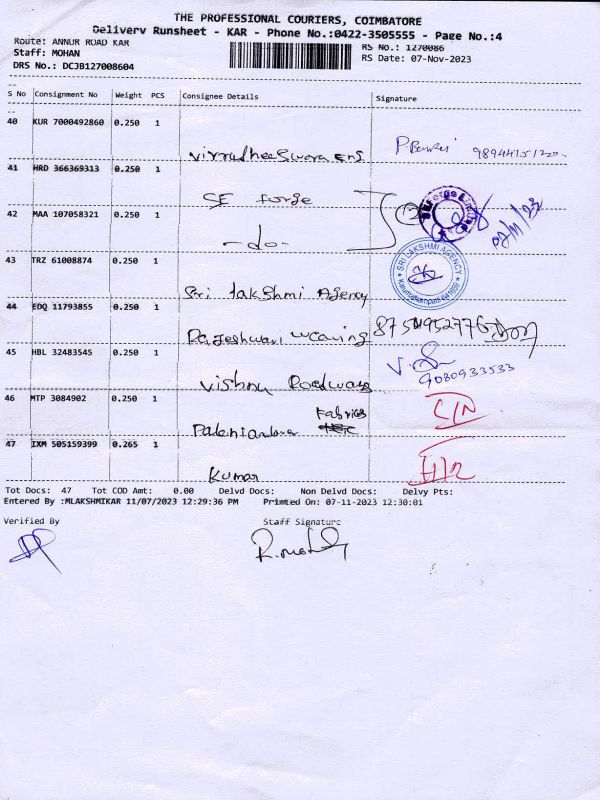 THE PROFESSIONAL COURIERS, COIMBATORE
Delivery Runsheet - KAR - Phone No.:0422-3505555 - Page No.:4
Route: ANNUR ROAD KAR
Staff: MOHAN
DRS No.: DCJB127008604
RS No.: 1270086
RS Date: 07-Nov-2023
S No Consignment No Weight PCS Consignee Details Signature
40 KUR 7000492860 0.250 1
Virudheeswara Eng P.
41 HRD 366369313 0.250 1
SE forge
42 MAA 107058321 0.250 1
-do-
43 TRZ 61008874 0.250 1
Sri Lakshmi Agency
SRI LAKSHMI AGENCY
44 EDQ 11793855 0.250 1
Rajeshwari Weaving
45 HBL 32483545 0.250 1
Vishnu Roadways 9080933533
46 MTP 3084902 0.250 1
Fabrics
47 IXM 505159399 0.265 1
Kumar
Tot Docs: 47 Tot COD Amt: 0.00 Delvd Docs: Non Delvd Docs: Delvy Pts:
Entered By :MLAKSHMIKAR 11/07/2023 12:29:36 PM Printed On: 07-11-2023 12:30:01
Verified By Staff Signature